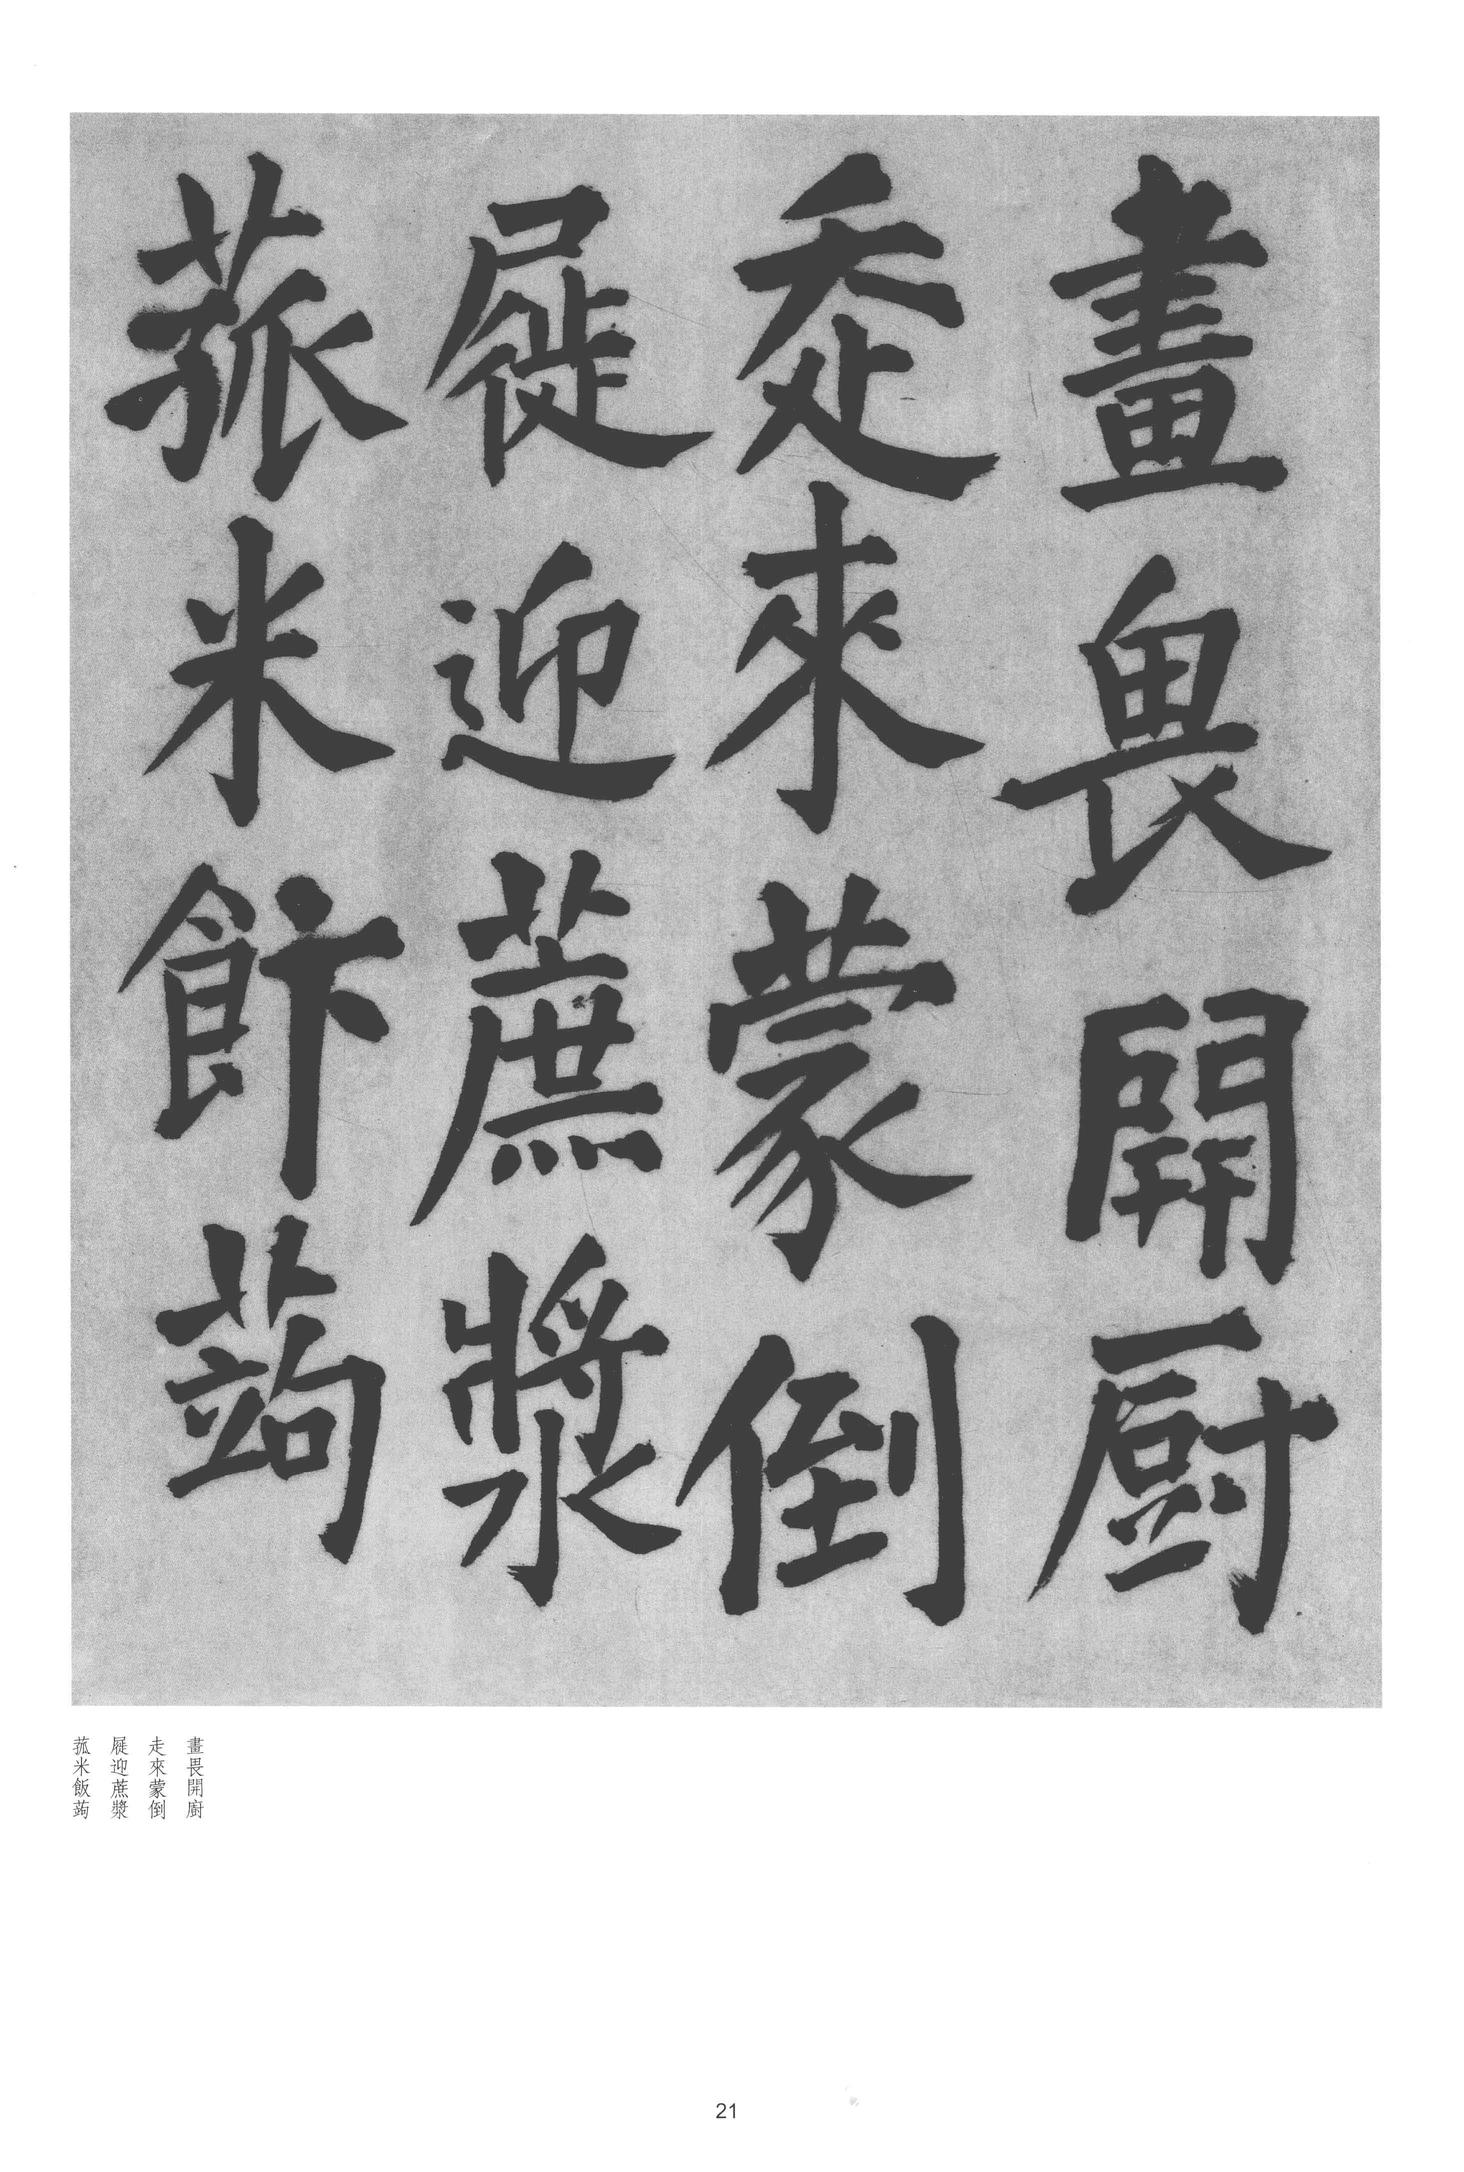 畫畏開厨
走來蒙倒
屣迎蔗漿
菰米飰蒟
畫畏開廚
走來蒙倒
屣迎蔗漿
菰米飯蒟
21